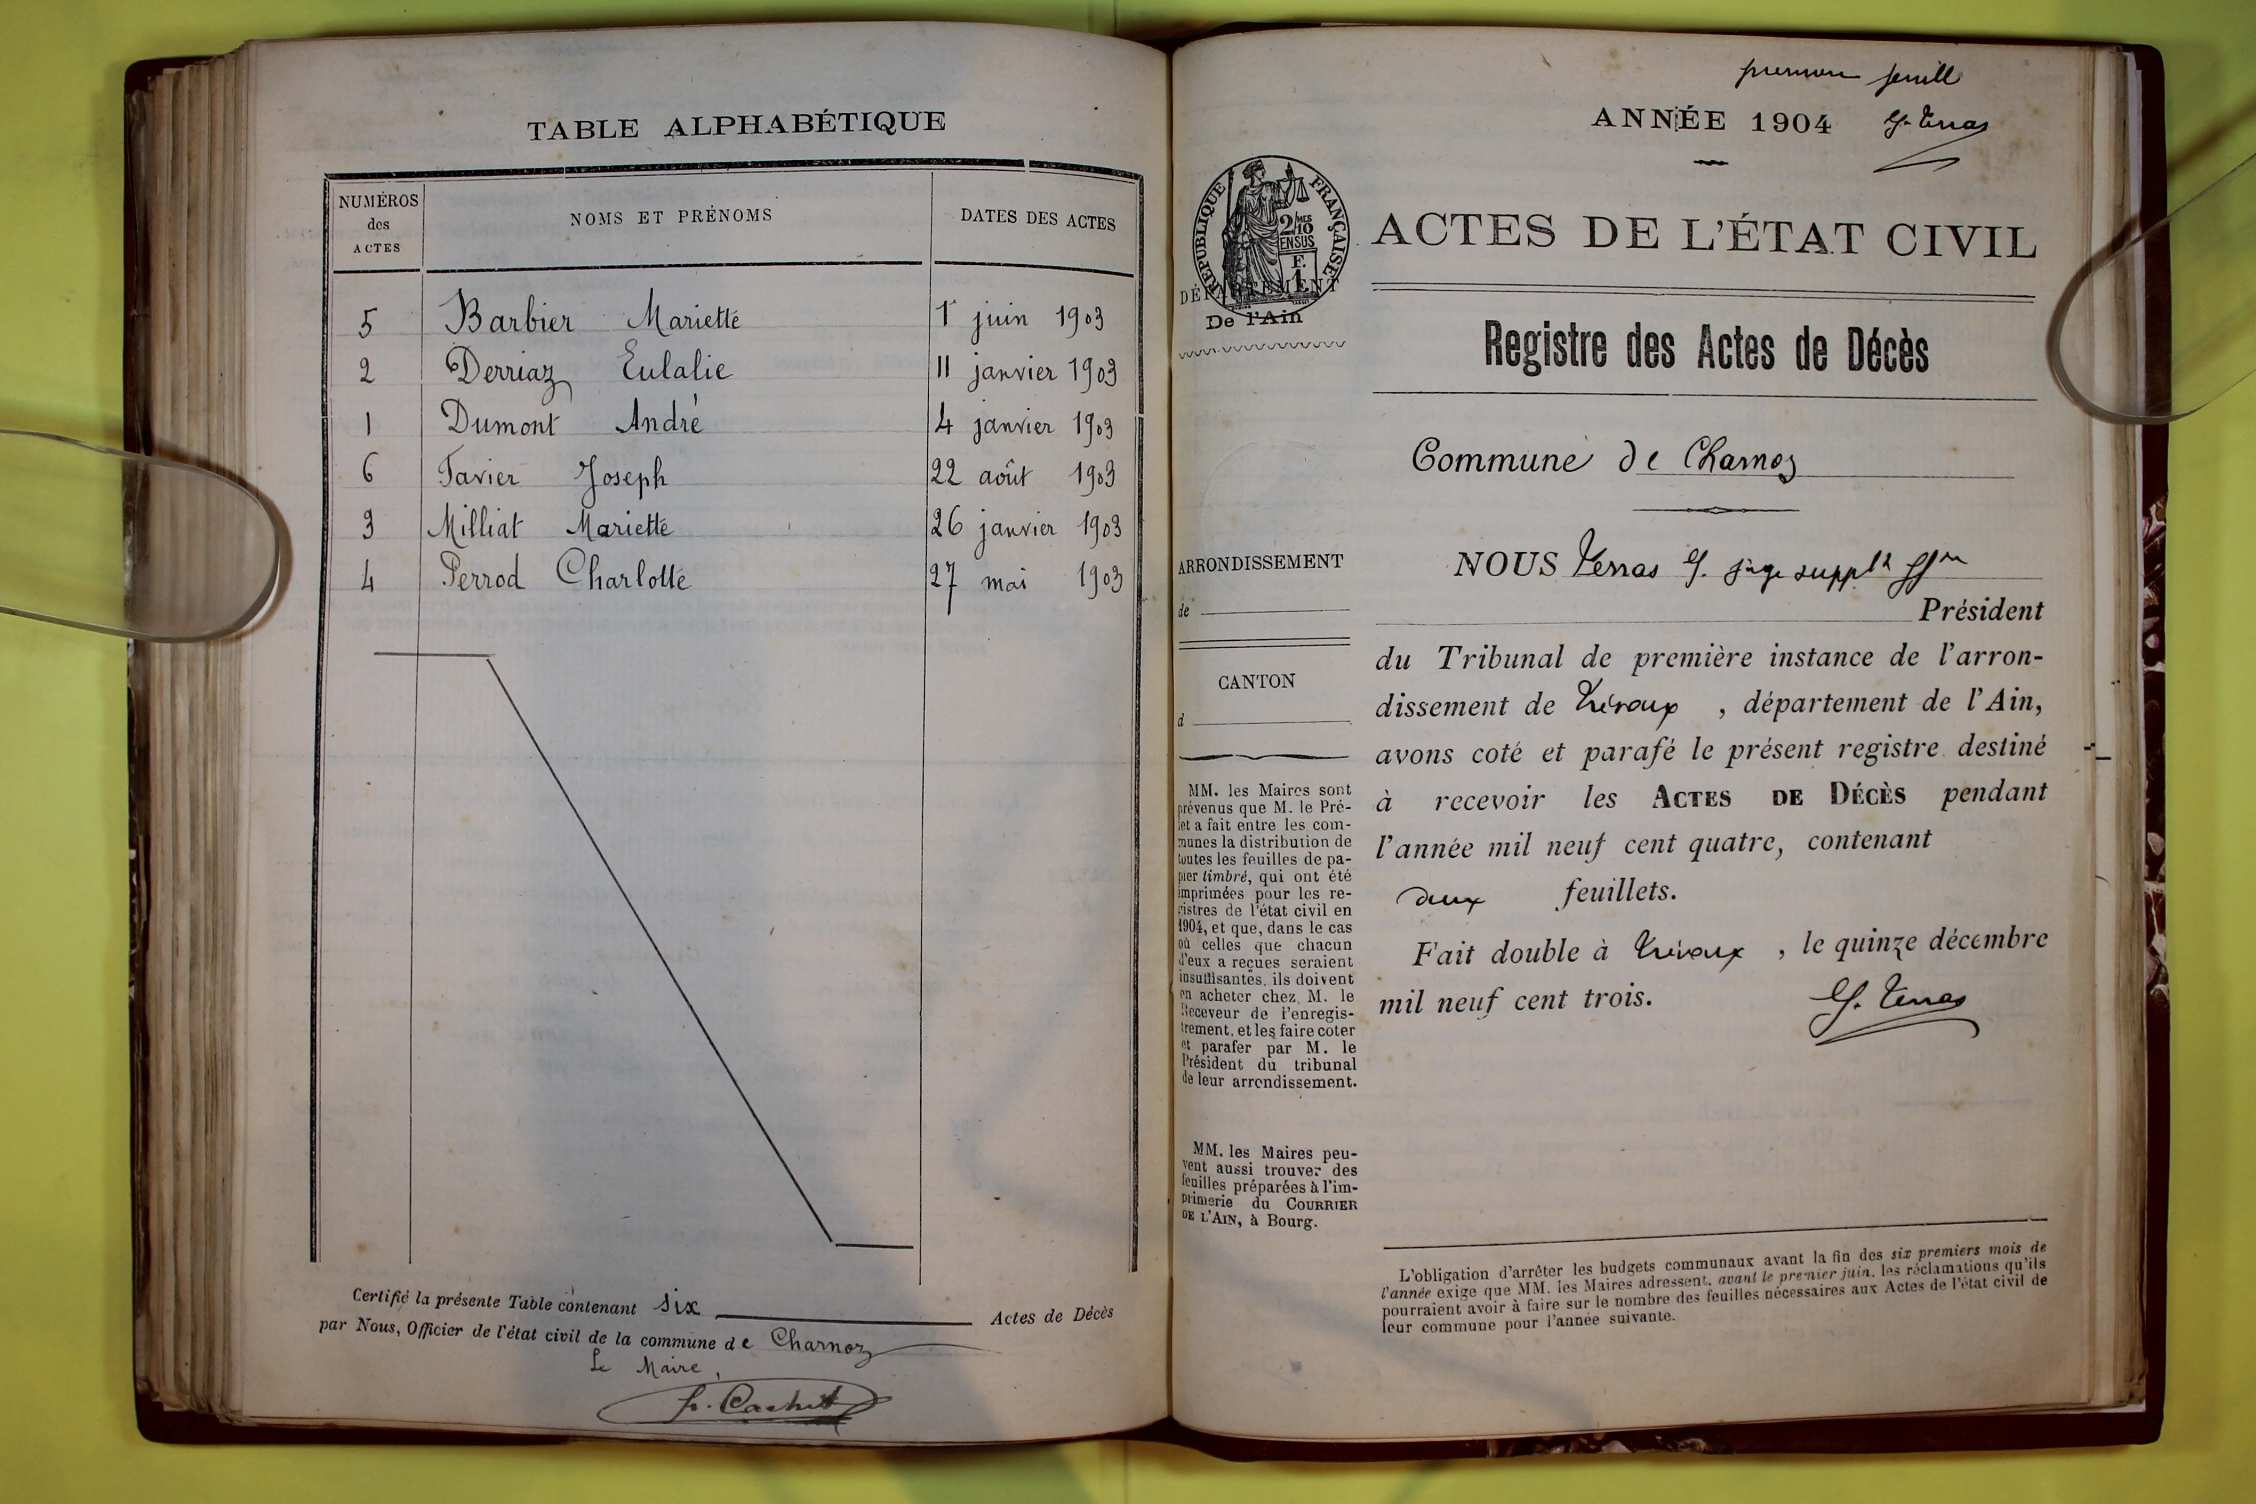 TABLE ALPHABÉTIQUE
NUMÉROS des ACTES
NOMS ET PRÉNOMS
DATES DES ACTES
5 Barbier Mariette 1r juin 1903
2 Derriaz Eulalie 11 janvier 1903
1 Dumont André 4 janvier 1903
6 Favier Joseph 22 août 1903
3 Milliat Mariette 26 janvier 1903
4 Perrod Charlotte 27 mai 1903
Certifié la présente Table contenant six Actes de Décès
par Nous, Officier de l'état civil de la commune de Charnoz
Le Maire,
premier feuill
ANNÉE 1904 G. Terras
RÉPUBLIQUE FRANÇAISE
2/10 MES
EN SUS
F.
1
DÉPARTEMENT
De l'Ain
ACTES DE L'ÉTAT CIVIL
Registre des Actes de Décès
Commune de Charnoz
ARRONDISSEMENT
de
CANTON
d
MM. les Maires sont
prévenus que M. le Pré-
fet a fait entre les com-
munes la distribution de
toutes les feuilles de pa-
pier timbré, qui ont été
imprimées pour les re-
gistres de l'état civil en
1904, et que, dans le cas
où celles que chacun
d'eux a reçues seraient
insuffisantes, ils doivent
en acheter chez M. le
Receveur de l'enregis-
trement, et les faire coter
et parafer par M. le
Président du tribunal
de leur arrondissement.
MM. les Maires peu-
vent aussi trouver des
feuilles préparées à l'im-
primerie du COURRIER
DE L'AIN, à Bourg.
NOUS Terras G. juge suppt ffon
Président
du Tribunal de première instance de l'arron-
dissement de Trévoux, département de l'Ain,
avons coté et parafé le présent registre destiné
à recevoir les ACTES DE DÉCÈS pendant
l'année mil neuf cent quatre, contenant
deux feuillets.
Fait double à Trévoux, le quinze décembre
mil neuf cent trois. G. Terras
L'obligation d'arrêter les budgets communaux avant la fin des six premiers mois de
l'année exige que MM. les Maires adressent, avant le premier juin, les réclamations qu'ils
pourraient avoir à faire sur le nombre des feuilles nécessaires aux Actes de l'état civil de
leur commune pour l'année suivante.